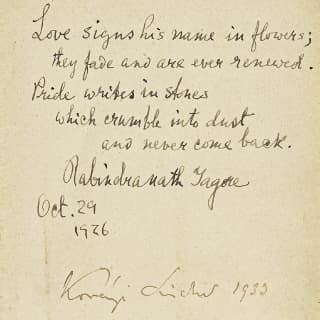 Love signs his name in flowers;
they fade and are ever renewed.
Pride writes in stones
which crumble into dust
and never come back.
Rabindranath Tagore
Oct. 29
1926
1933